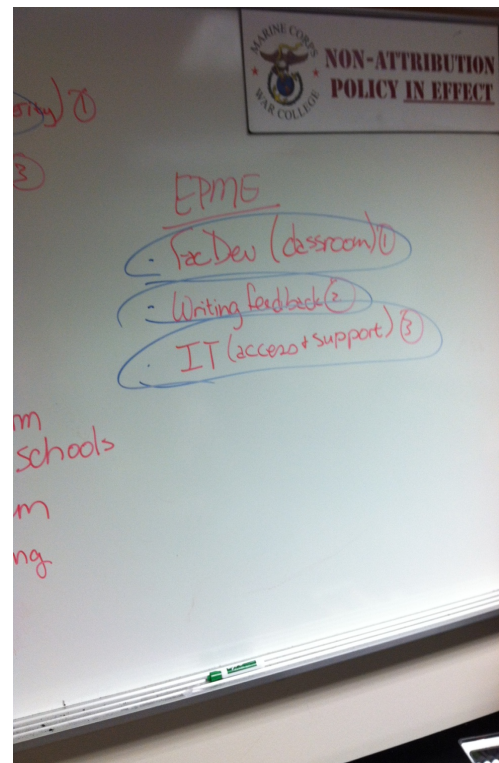 MARINE CORPS
WAR COLLEGE
NON-ATTRIBUTION
POLICY IN EFFECT
sity) ①
③
EPME
- FacDev (classroom) ①
- Writing feedback ②
· IT (access + support) ③
m
schools
m
ng